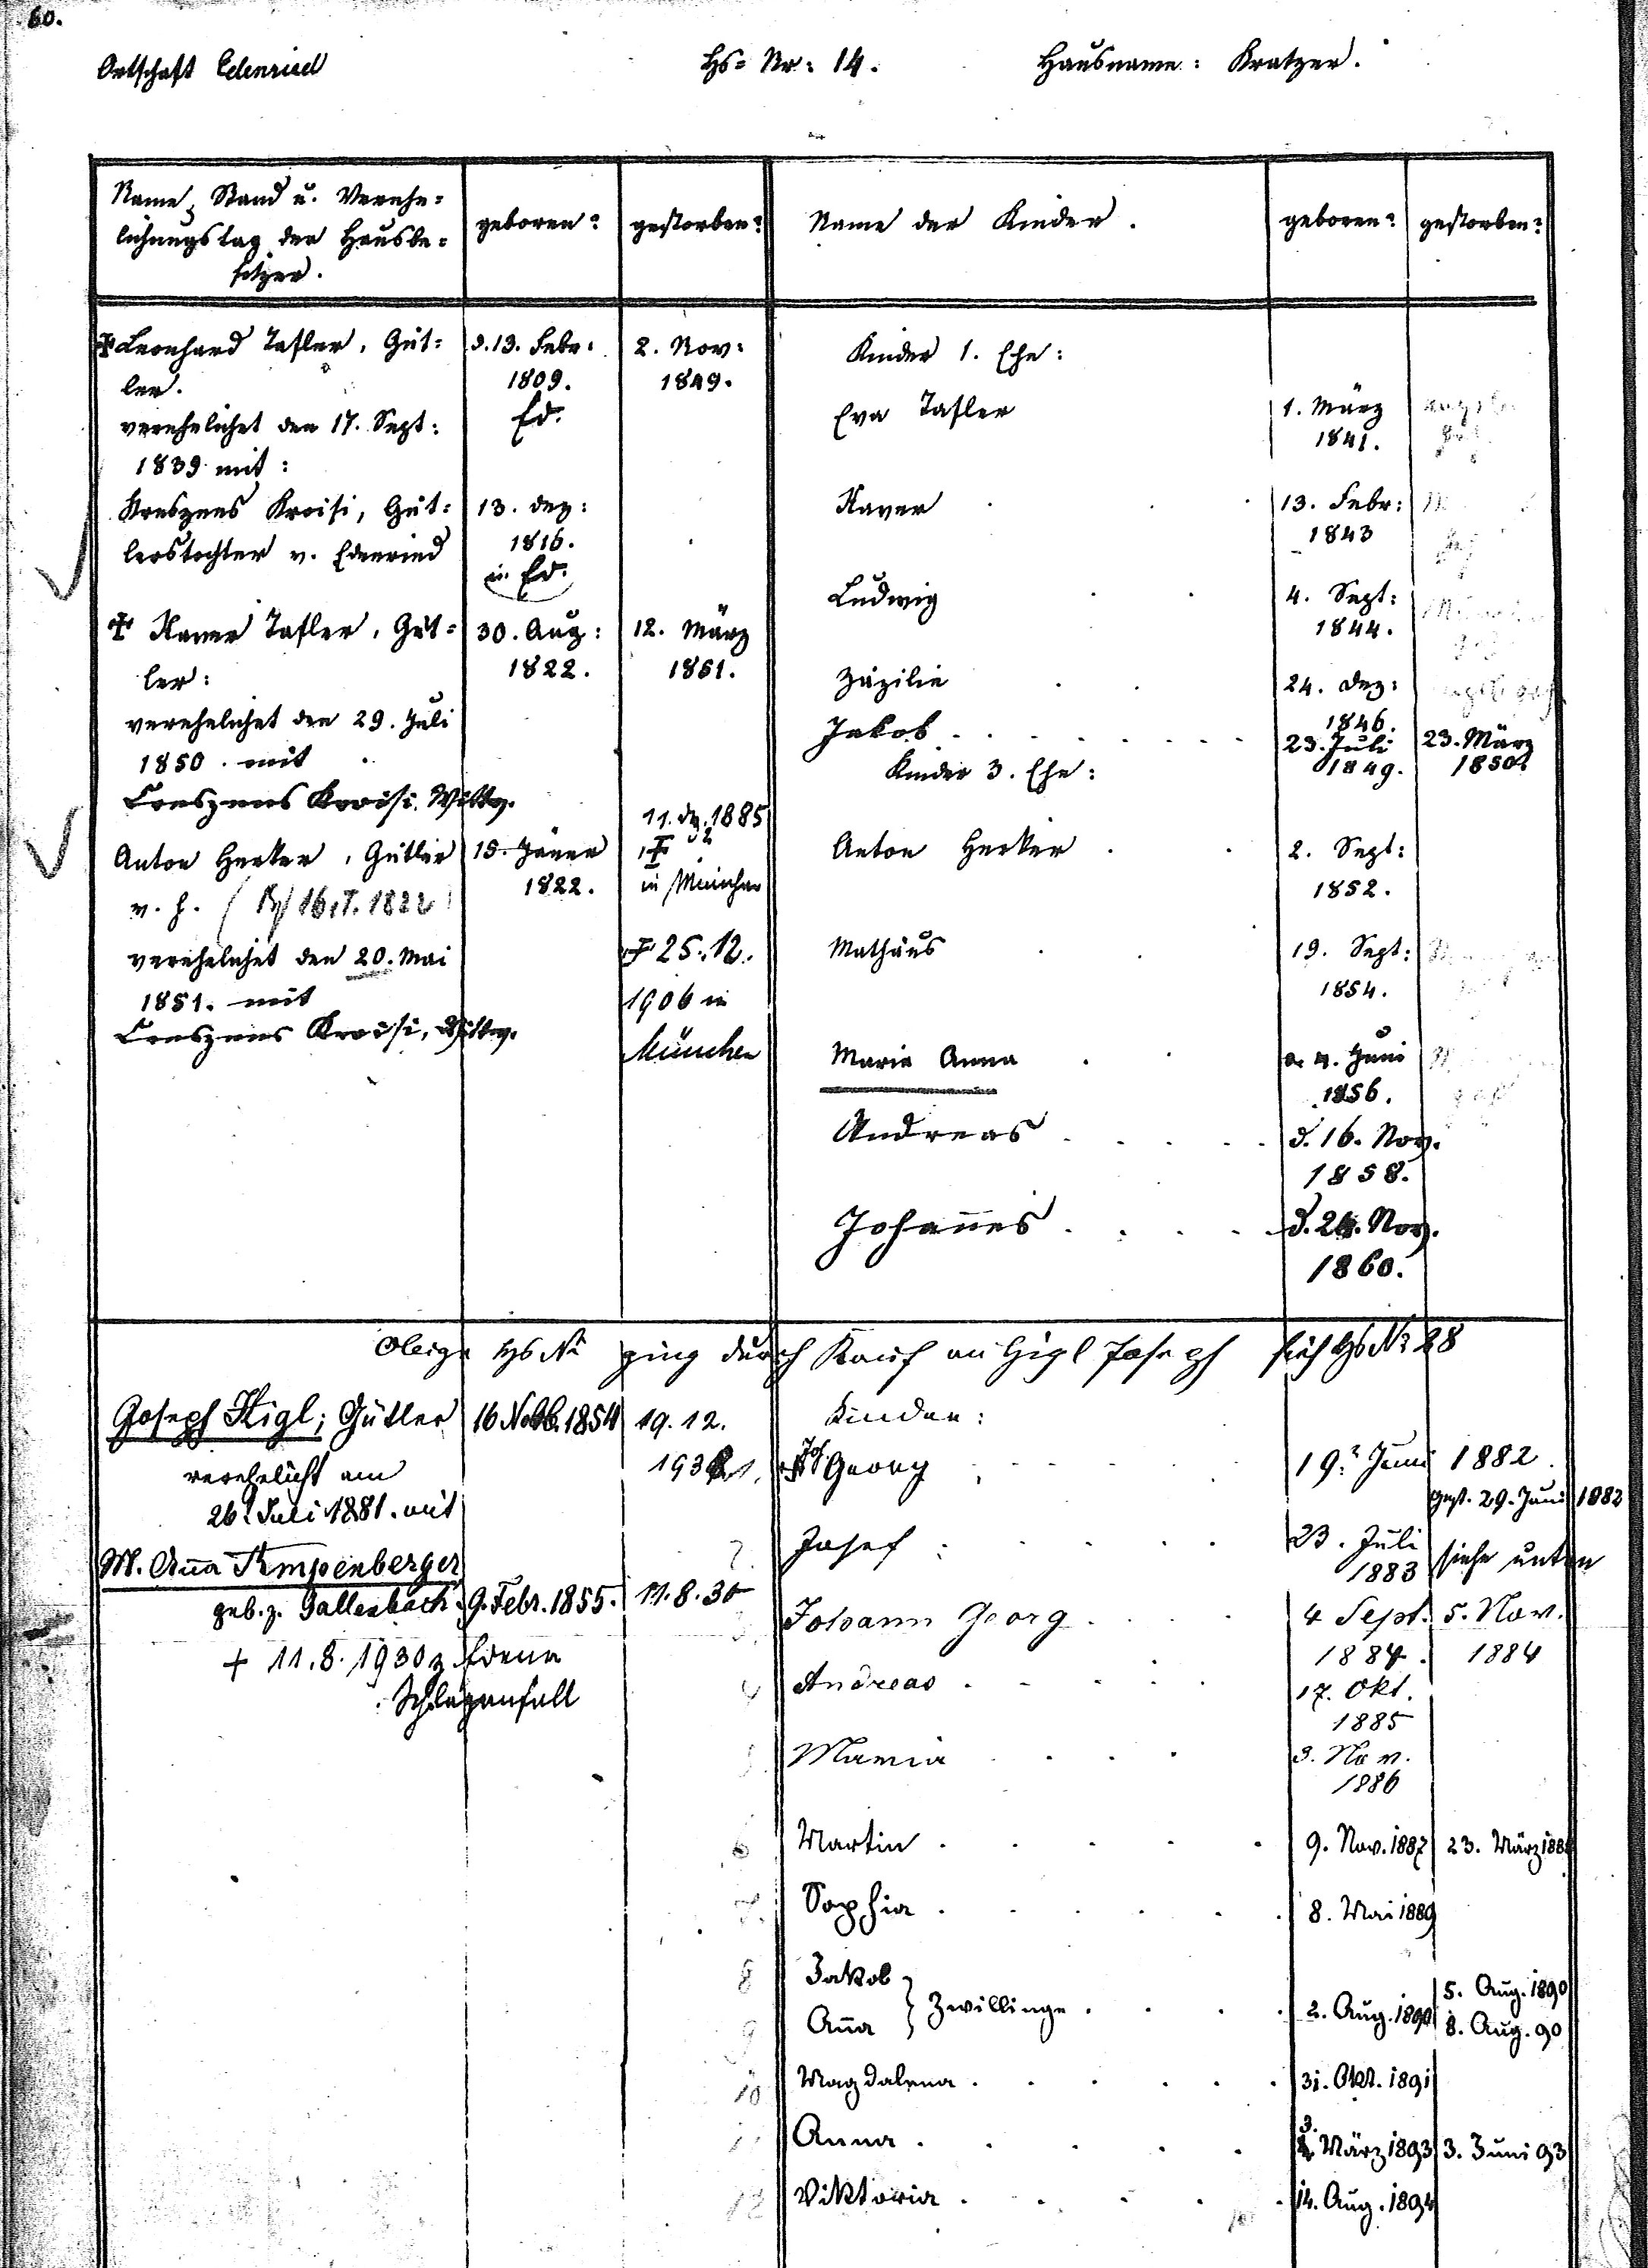 60.
Ortschaft Edenried Hs= Nr: 14. Hausname: Kratzer.
Name, Stand u. Verehe=
lichungstag der Hausbe=
sitzer.
geboren?
gestorben?
Name der Kinder.
geboren?
gestorben?
Leonhard Tafler, Güt= d. 13. Febr: 2. Nov: Kinder 1. Ehe:
ler. 1809. 1849.
verehelichet den 17. Sept: Ed. Eva Tafler 1. März
1839 mit: 1841.
Kreszens Kroisi, Güt= 13. Dez: Xaver 13. Febr:
lerstochter v. Edenried 1816. 1843
in Ed.
Ludwig 4. Sept:
Xaver Tafler, Güt= 30. Aug: 12. März 1844.
ler: 1822. 1851. Zäzilie 24. Dez:
verehelichet den 29. Juli 1846.
1850. mit Jakob 23. Juli 23. März
1849. 1850.
Kinder 3. Ehe:
Creszens Kroisi, Wittw.
11. Dz. 1885
Anton Herker, Gütler 15. Jäner in München Anton Herker 2. Sept:
v. h. (16. I. 1822 1822. 1852.
verehelichet den 20. Mai 25. 12. Mathäus 19. Sept:
1851. mit 1906 in 1854.
Creszens Kroisi, Wittw. München
Maria Anna 4. Juni
1856.
Andreas d. 16. Nov.
1858.
Johannes d. Nov.
1860.
Obige Hs No ging durch Kauf an Higl Joseph sieh Hs No 28
Joseph Higl; Gütler 16 Novb. 1854 19. 12. Kinder:
verehelicht am Georg 19. Juni 1882.
26. Juli 1881. mit gest. 29. Juni 1882
Josef 23. Juli siehe unten
1883
M. Anna Kempenberger
geb. z. Gallenbach 9. Febr. 1855. 11. 8. 30 Johann Georg 4 Sept. 5. Nov.
+ 11. 8. 1930 z. Edenr 1884. 1884
Schlaganfall 4 Andreas 17. Okt.
1885
Maria 3. Nov.
1886
6 Martin 9. Nov. 1887 23. März 188
7. Sophia 8. Mai 1889
8 Jakob } Zwillinge 2. Aug. 1890 5. Aug. 1890
9 Anna 8. Aug. 90
10 Magdalena 31. Okt. 1891
Anna 3. März 1893 3. Juni 93
12 Viktoria 14. Aug. 1894